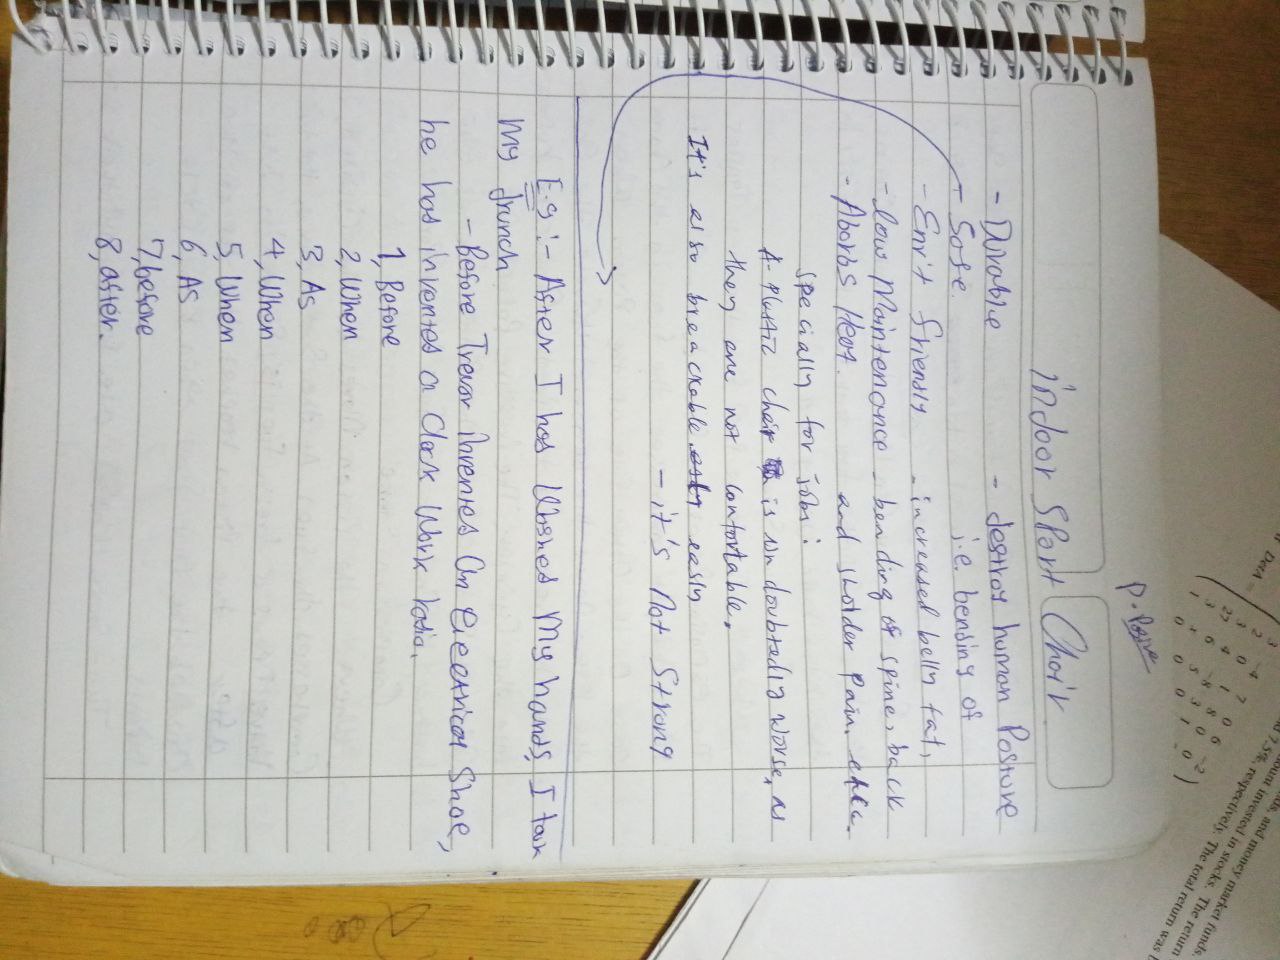 P. Passive
indoor Sport Chair
- Durable - destroy human Posture
- Safe. i.e. bending of
- Envi't friendly - increased belly fat,
- low Maintenance - bending of spine, back
- Absorbs Heat. and sholder Pain. etc.
specially for jobs:
A Plastic chair is un doubtedly worse, as
they are not confortable,
It's also breackable easly
- it's Not Strong
E.g :- After I has Washed My hands, I took
My Lunch
- Before Trevor invented an Electrical Shoe,
he has invented a Clock Work Radio.
1, Before
2, When
3, As
4, When
5, When
6, As
7, before
8, after.
Det A =
and money market funds.
amount invested in stocks. The return
7.5%, respectively. The total return was